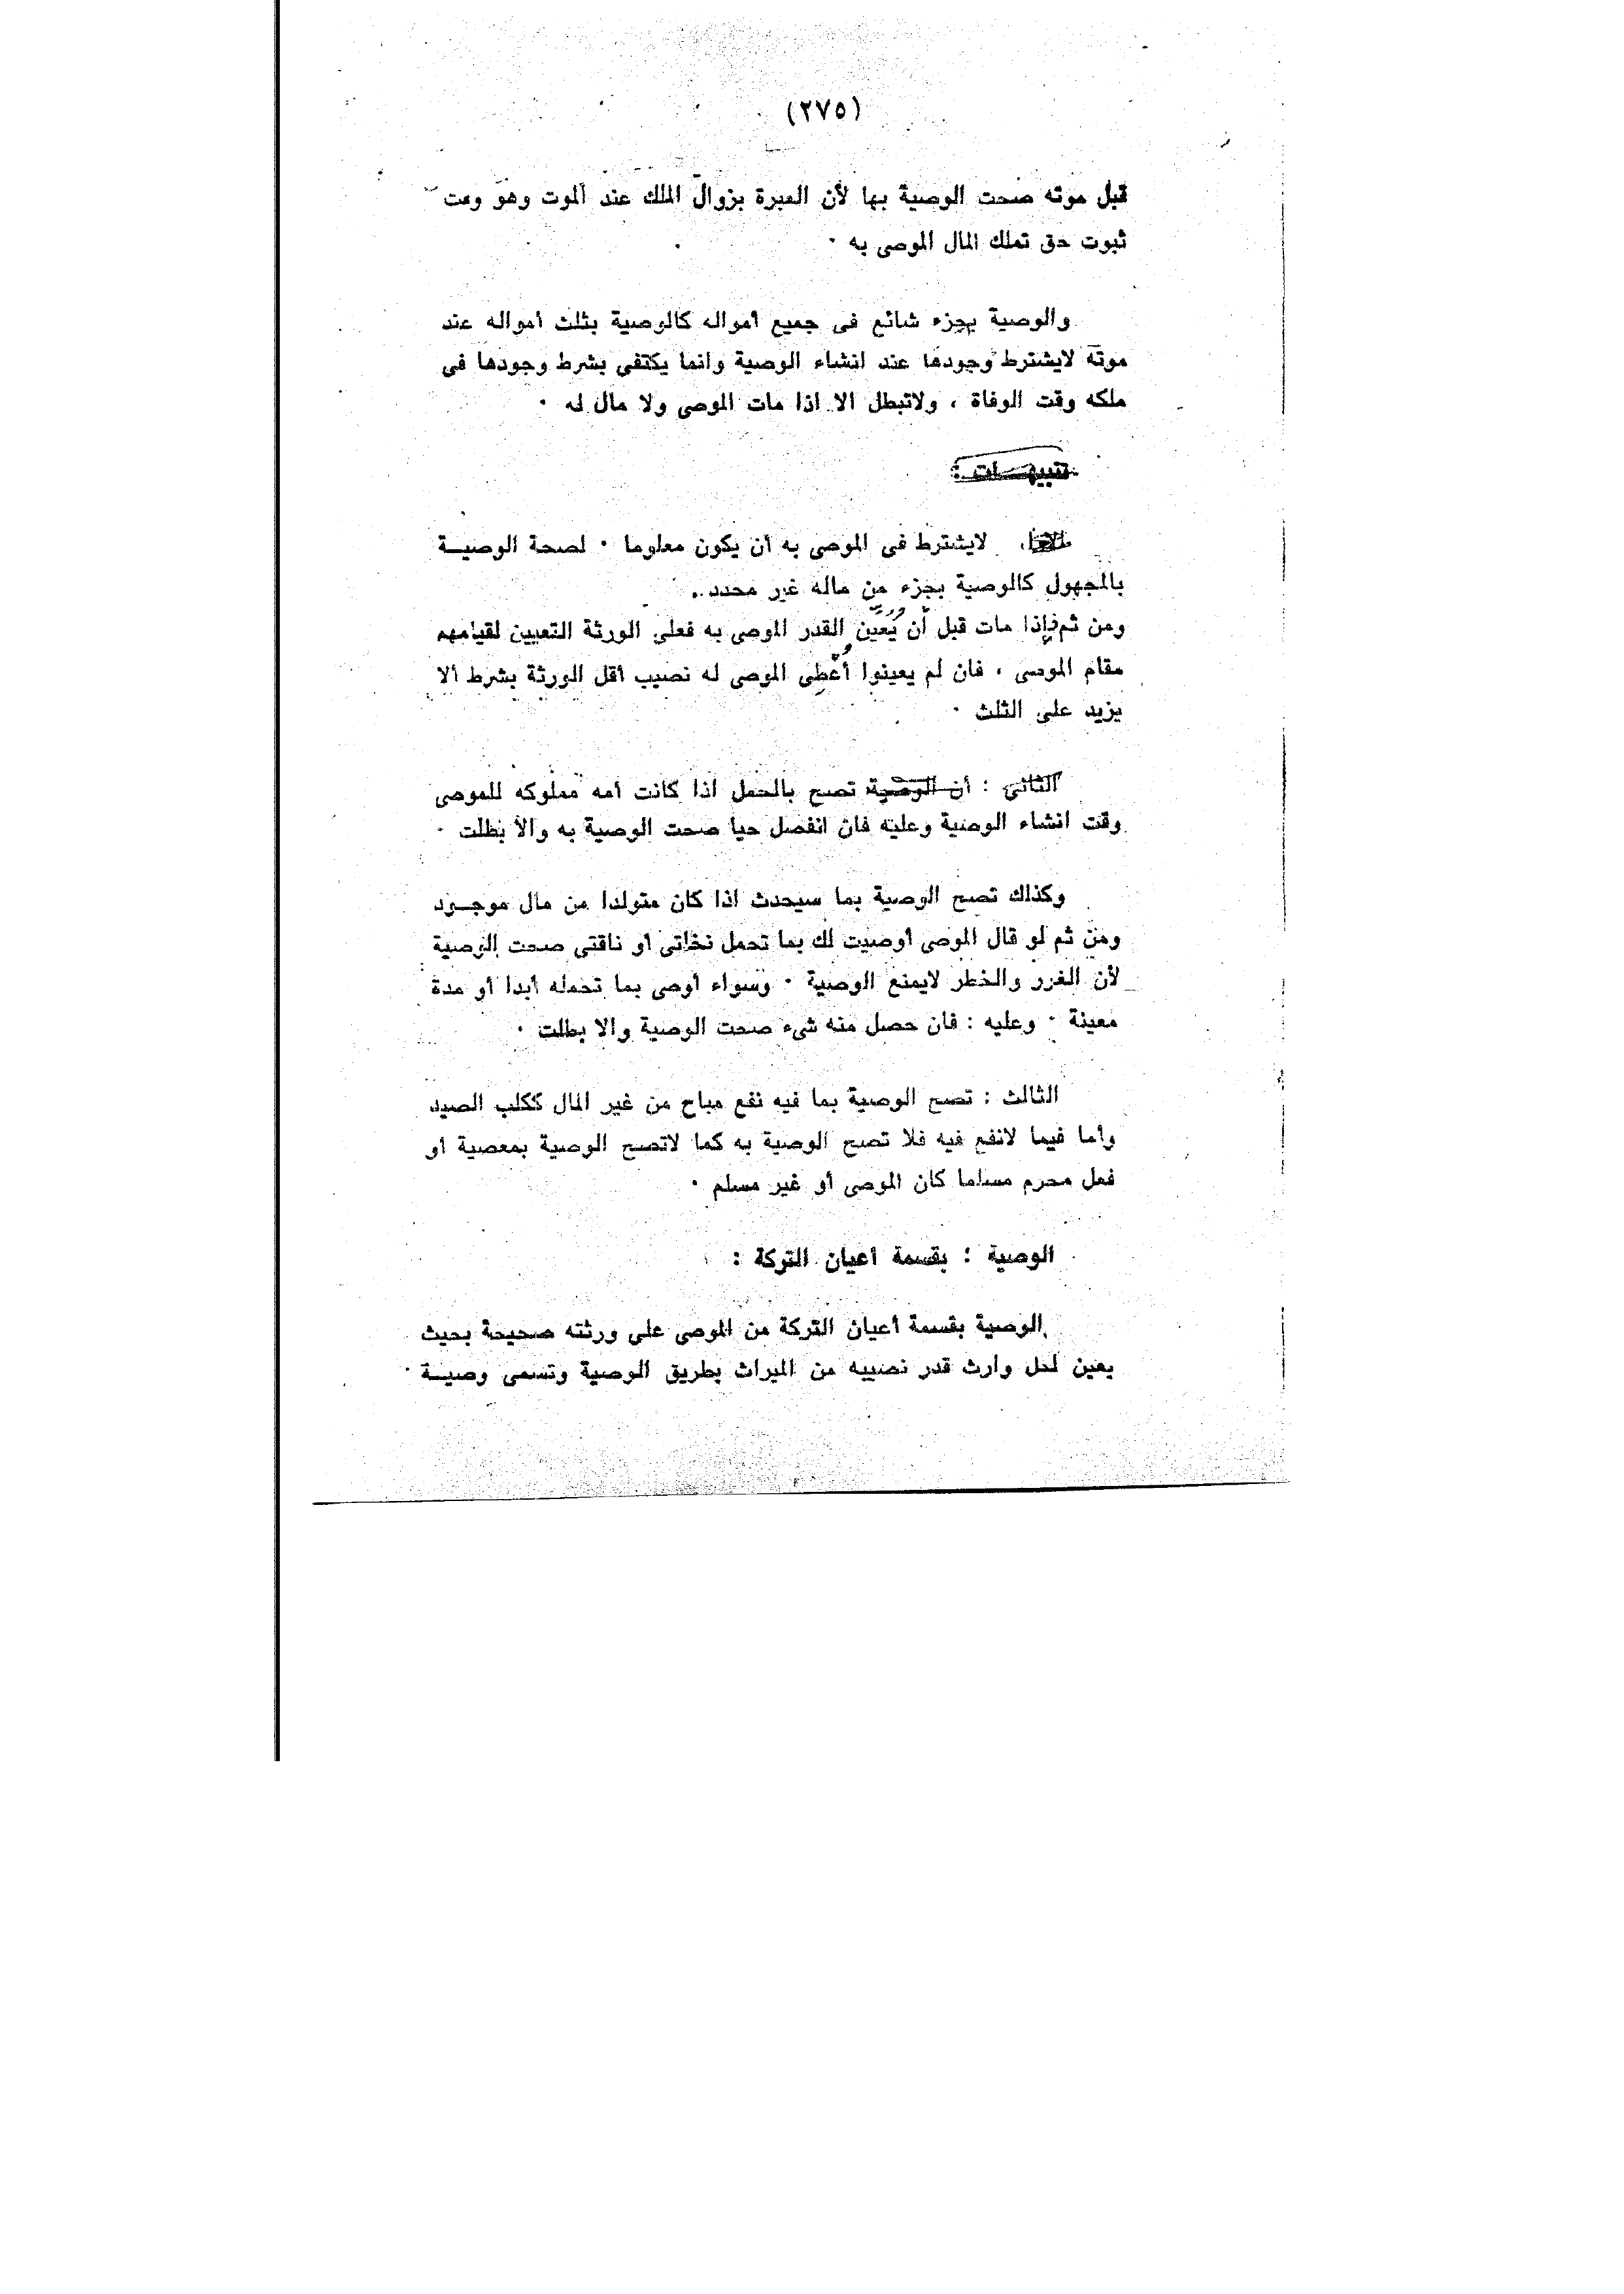 (٢٧٥)
قبل موته صحت الوصية بها لأن العبرة بزوال الملك عند الموت وهو وقت
ثبوت حق تملك المال الموصى به .
والوصية بجزء شائع فى جميع أمواله كالوصية بثلث أمواله عند
موته لايشترط وجودها عند انشاء الوصية وانما يكتفى بشرط وجودها فى
ملكه وقت الوفاة ، ولاتبطل الا اذا مات الموصى ولا مال له .
تنبيهــات :
لايشترط فى الموصى به أن يكون معلوما . لصحة الوصيــة
بالمجهول كالوصية بجزء من ماله غير محدد .
ومن ثم فإذا مات قبل أن يُعَيِّن القدر الموصى به فعلى الورثة التعيين لقيامهم
مقام الموصى ، فان لم يعينوا أُعْطِى الموصى له نصيب أقل الورثة بشرط ألا
يزيد على الثلث .
الثانى : أن الوصية تصح بالحمل اذا كانت أمه مملوكه للموصى
وقت انشاء الوصية وعليه فان انفصل حيا صحت الوصية به والا بطلت .
وكذلك تصح الوصية بما سيحدث اذا كان متولدا من مال موجــود
ومن ثم لو قال الموصى أوصيت لك بما تحمل نخلتى أو ناقتى صحت الوصية
لأن الغرر والخطر لايمنع الوصية . وسواء أوصى بما تحمله أبدا أو مدة
معينة . وعليه : فان حصل منه شىء صحت الوصية والا بطلت .
الثالث : تصح الوصية بما فيه نفع مباح من غير المال ككلب الصيد
وأما فيما لانفع فيه فلا تصح الوصية به كما لاتصح الوصية بمعصية أو
فعل محرم مسلما كان الموصى أو غير مسلم .
الوصية : بقسمة أعيان التركة :
الوصية بقسمة أعيان التركة من الموصى على ورثته صحيحة بحيث
يعين لكل وارث قدر نصيبه من الميراث بطريق الوصية وتسمى وصيــة